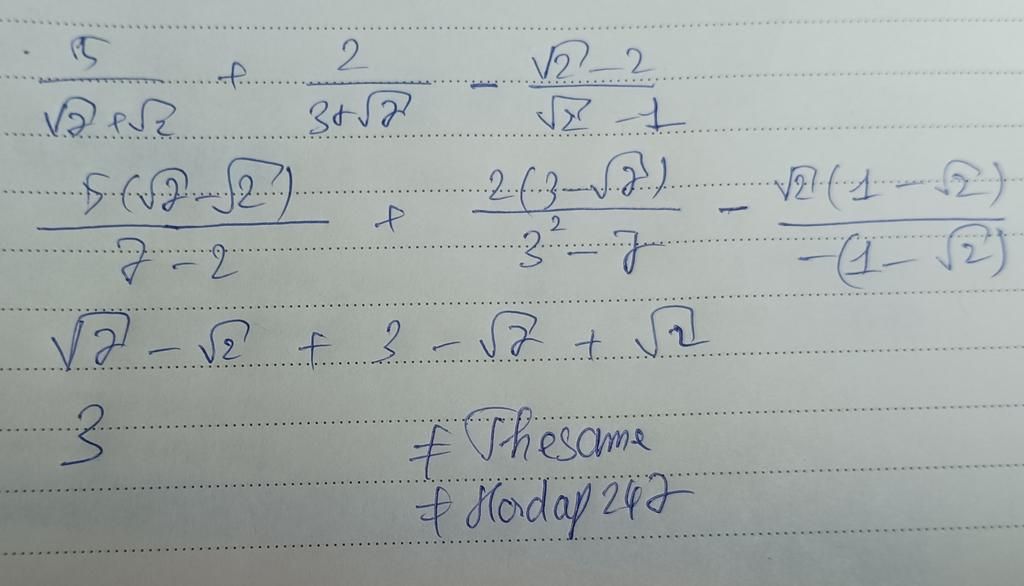 5/(√7+√2) + 2/(3+√7) - (√2-2)/(√2-1)
5(√7-√2)/(7-2) + 2(3-√7)/(3²-7) - √2(1-√2)/(-(1-√2))
√7 - √2 + 3 - √7 + √2
3
# Thesame
# Hoidap247